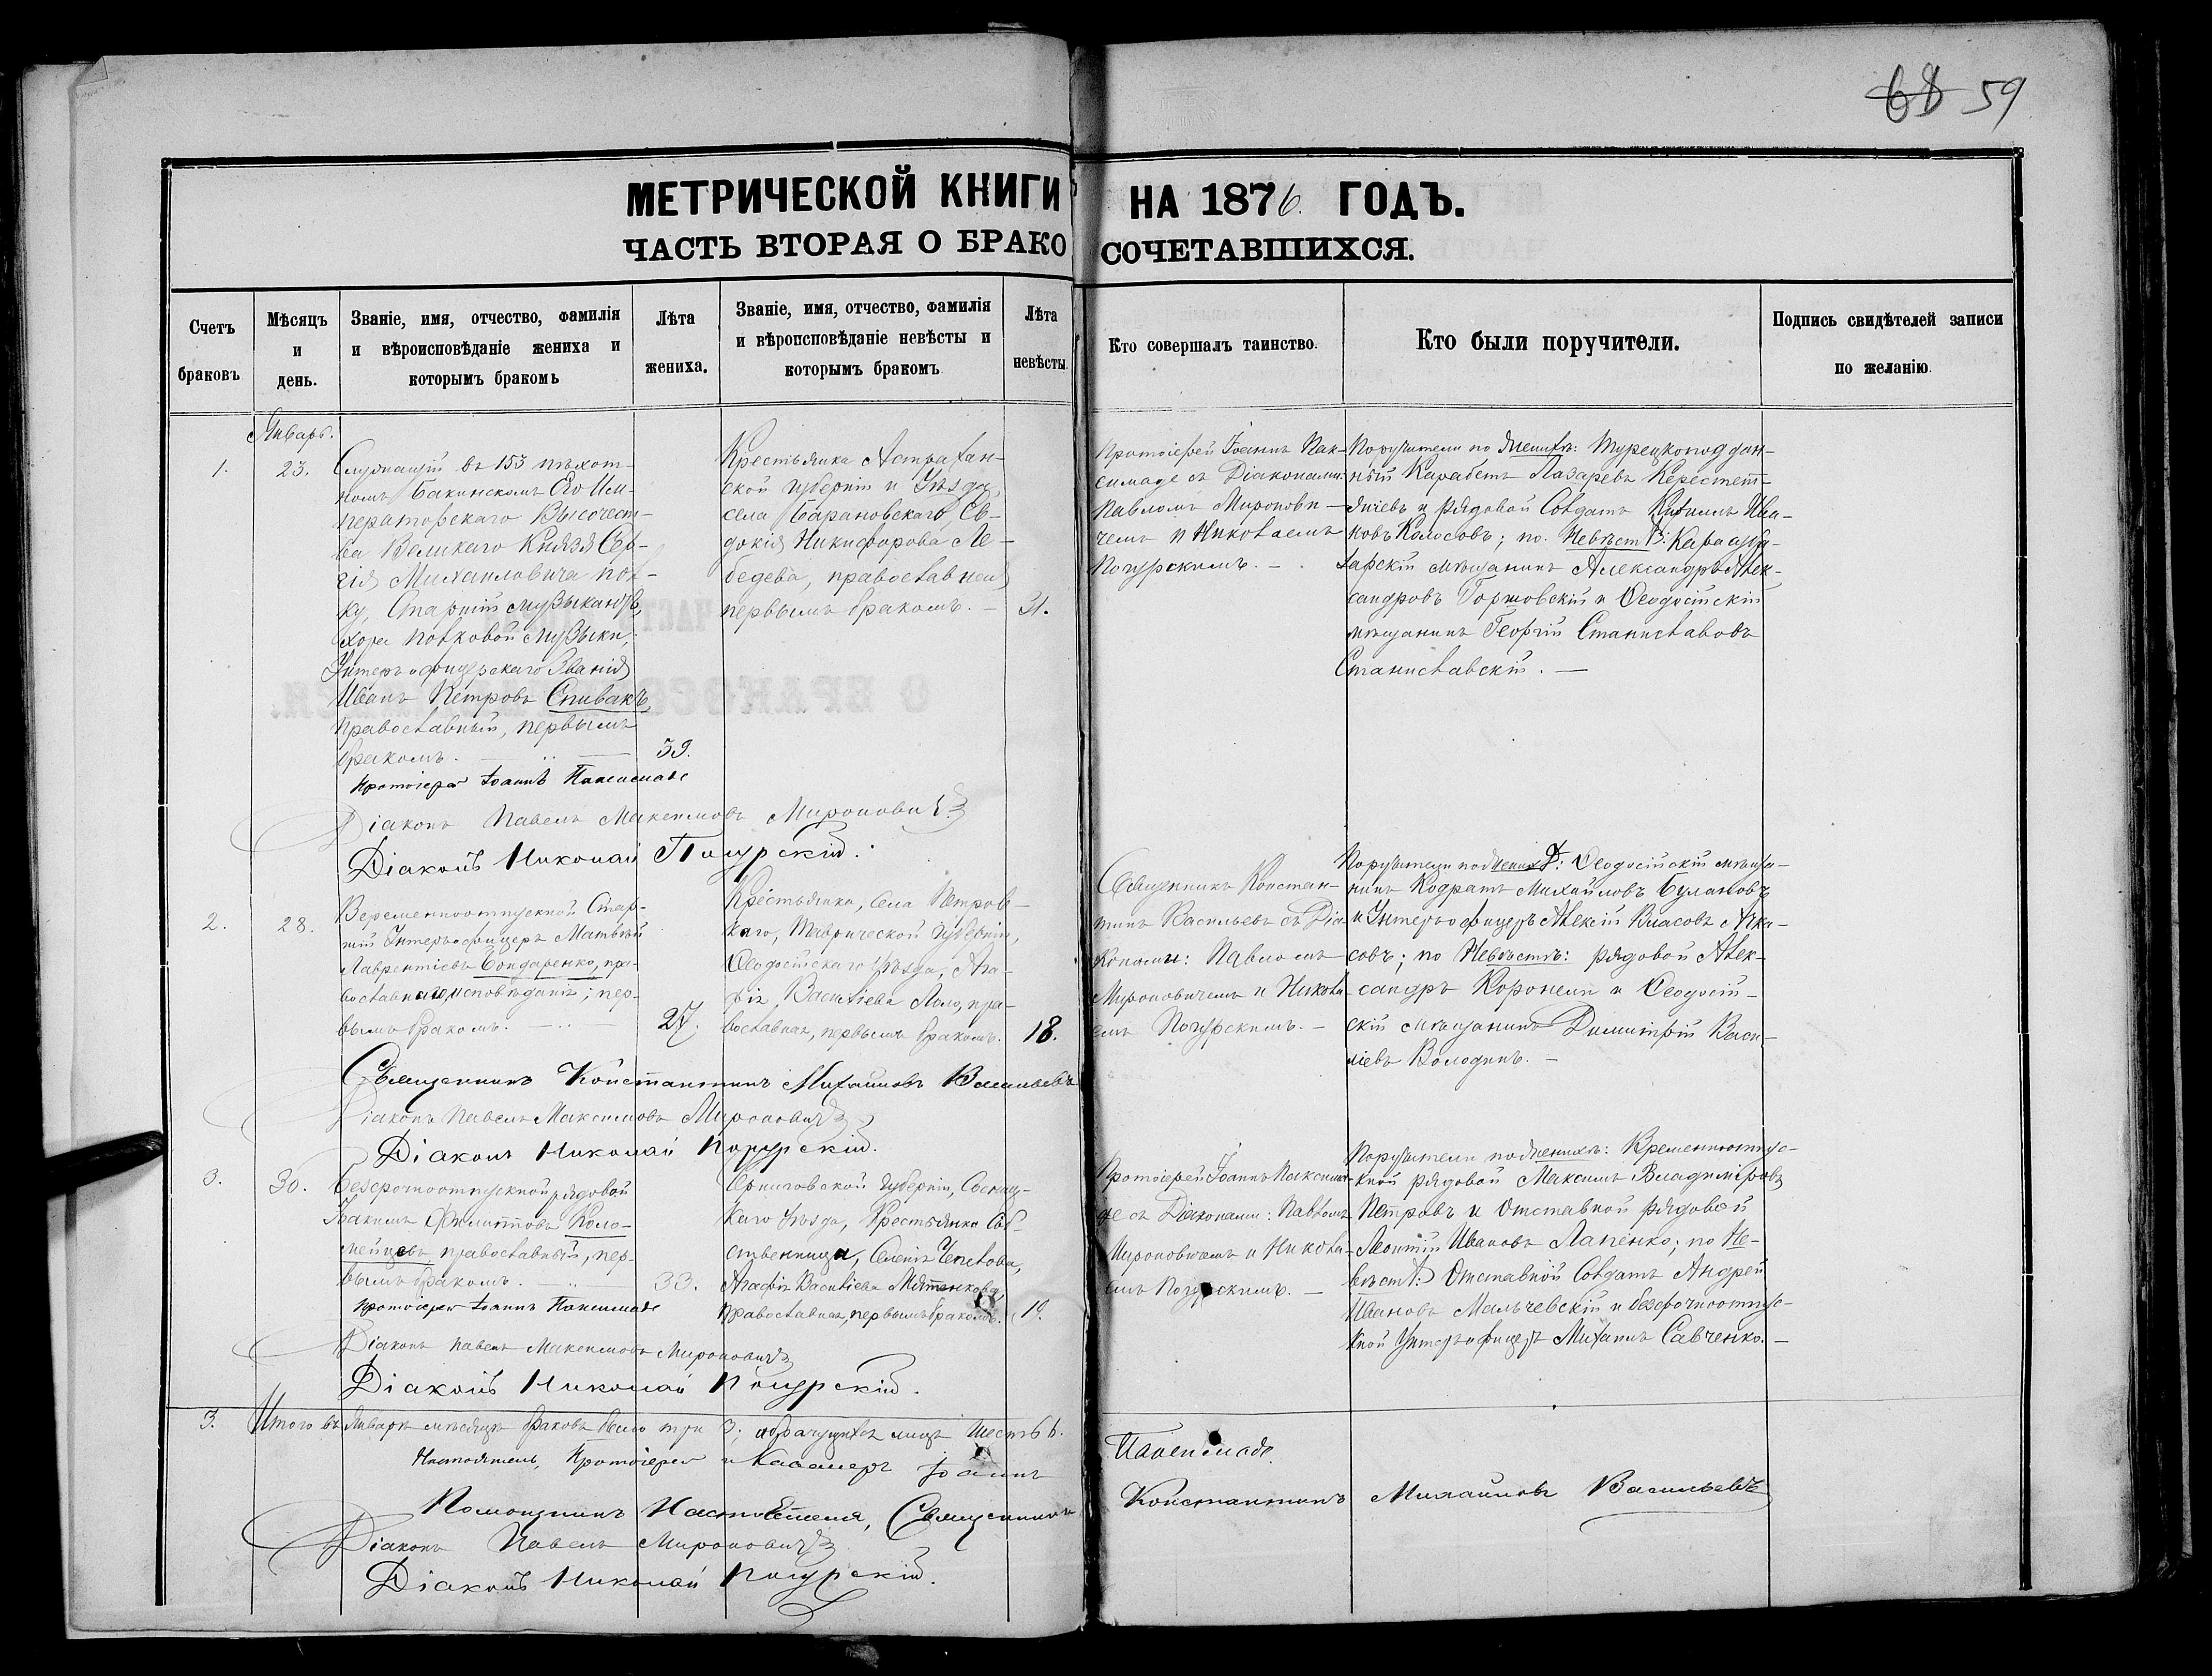 59
МЕТРИЧЕСКОЙ КНИГИ НА 1876 ГОДЪ.
ЧАСТЬ ВТОРАЯ О БРАКОСОЧЕТАВШИХСЯ.
Счетъ браковъ
Мѣсяцъ и день.
Званіе, имя, отчество, фамилія
и вѣроисповѣданіе жениха и
которымъ бракомъ
Лѣта жениха.
Званіе, имя, отчество, фамилія
и вѣроисповѣданіе невѣсты и
которымъ бракомъ
Лѣта невѣсты.
Кто совершалъ таинство.
Кто были поручители.
Подпись свидѣтелей записи
по желанію.
Январь.
1.
23.
Служащій въ 153 пѣхот-
номъ Бакинскомъ Его Им-
ператорскаго Высочест-
ва Великаго Князя Сер-
гія Михаиловича пол-
ку, Старшій музыкантъ,
хора полковой музыки,
Унтеръ офицерскаго званія
Иванъ Петровъ Спивакъ,
православный, первымъ
бракомъ.
39.
Крестьянка Астрахан-
ской губерніи и уѣзда,
села Барановскаго, Ев-
докія Никифорова Ле-
бедева, православная
первымъ бракомъ.
31.
Протоіерей Іоаннъ Пак-
симаде съ Діаконами
Павломъ Миронови-
чемъ и Николаемъ
Погурскимъ.
Поручители по женихѣ: Турецкоподдан-
ный Карабетъ Лазаревъ
и рядовой Солдатъ Ива-
новъ Колосовъ; по Невѣстѣ: Карасуба-
зарскій мѣщанинъ Александръ Алек-
сандровъ и Ѳеодосійскій
мѣщанинъ Георгій Станиславовъ
Станиславскій.
Протоіерей Іоаннъ Паксимаде
Діаконъ Павелъ Максимовъ Мироновичъ
Діаконъ Николай Погурскій.
2.
28.
Временноотпускной Стар-
шій Унтеръ офицеръ Матвѣй
Лаврентіевъ Бондаренко, пра-
вославнаго исповѣданія; пер-
вымъ бракомъ.
27.
Крестьянка, села Петров-
каго, Таврической губерніи,
Ѳеодосійскаго уѣзда, Ага-
фія Васильева Лало, пра-
вославная, первымъ бракомъ.
18.
Священникъ Констан-
тинъ Васильевъ съ Діа-
конами: Павломъ
Мироновичемъ и Никола-
емъ Погурскимъ.
Поручители по женихѣ: Ѳеодосійскій мѣща-
нинъ Кодратъ Михайловъ Булановъ
и Унтеръ офицеръ Алексій Власовъ Арка-
совъ; по Невѣстѣ: рядовой Алек-
сандръ Коронели и Ѳеодосій-
скій мѣщанинъ Димитрій Васи-
ліевъ Володинъ.
Священникъ Константинъ Михаиловъ Васильевъ
Діаконъ Павелъ Максимовъ Мироновичъ
Діаконъ Николай Погурскій.
3.
30.
Безсрочноотпускной рядовой
Іоакимъ Филипповъ Коло-
мейцевъ православный, пер-
вымъ бракомъ.
33.
Черниговской губерніи, Сосниц-
каго уѣзда, Крестьянка Соб-
ственница,
Агафія Васильева
православная, первымъ бракомъ.
19.
Протоіерей Іоаннъ Паксима-
де съ Діаконами: Павломъ
Мироновичемъ и Никола-
емъ Погурскимъ.
Поручители по женихѣ: Временноотпус-
кной рядовой Максимъ Владиміровъ
Петровъ и отставной рядовой
Леонтій Ивановъ Лапенко; по Не-
вѣстѣ: Отставной Солдатъ Андрей
Ивановъ Мальчевскій и безсрочноотпус-
кной Унтеръ офицеръ Михаилъ Савченко.
Протоіерей Іоаннъ Паксимаде
Діаконъ Павелъ Максимовъ Мироновичъ
Діаконъ Николай Погурскій.
3.
Итого въ Январѣ мѣсяцѣ браковъ было три 3; лицъ шесть 6.
Настоятель, Протоіерей и Кавалеръ Іоаннъ Паксимаде.
Помощникъ Настоятеля, Священникъ Константинъ Михаиловъ Васильевъ
Діаконъ Павелъ Мироновичъ
Діаконъ Николай Погурскій.